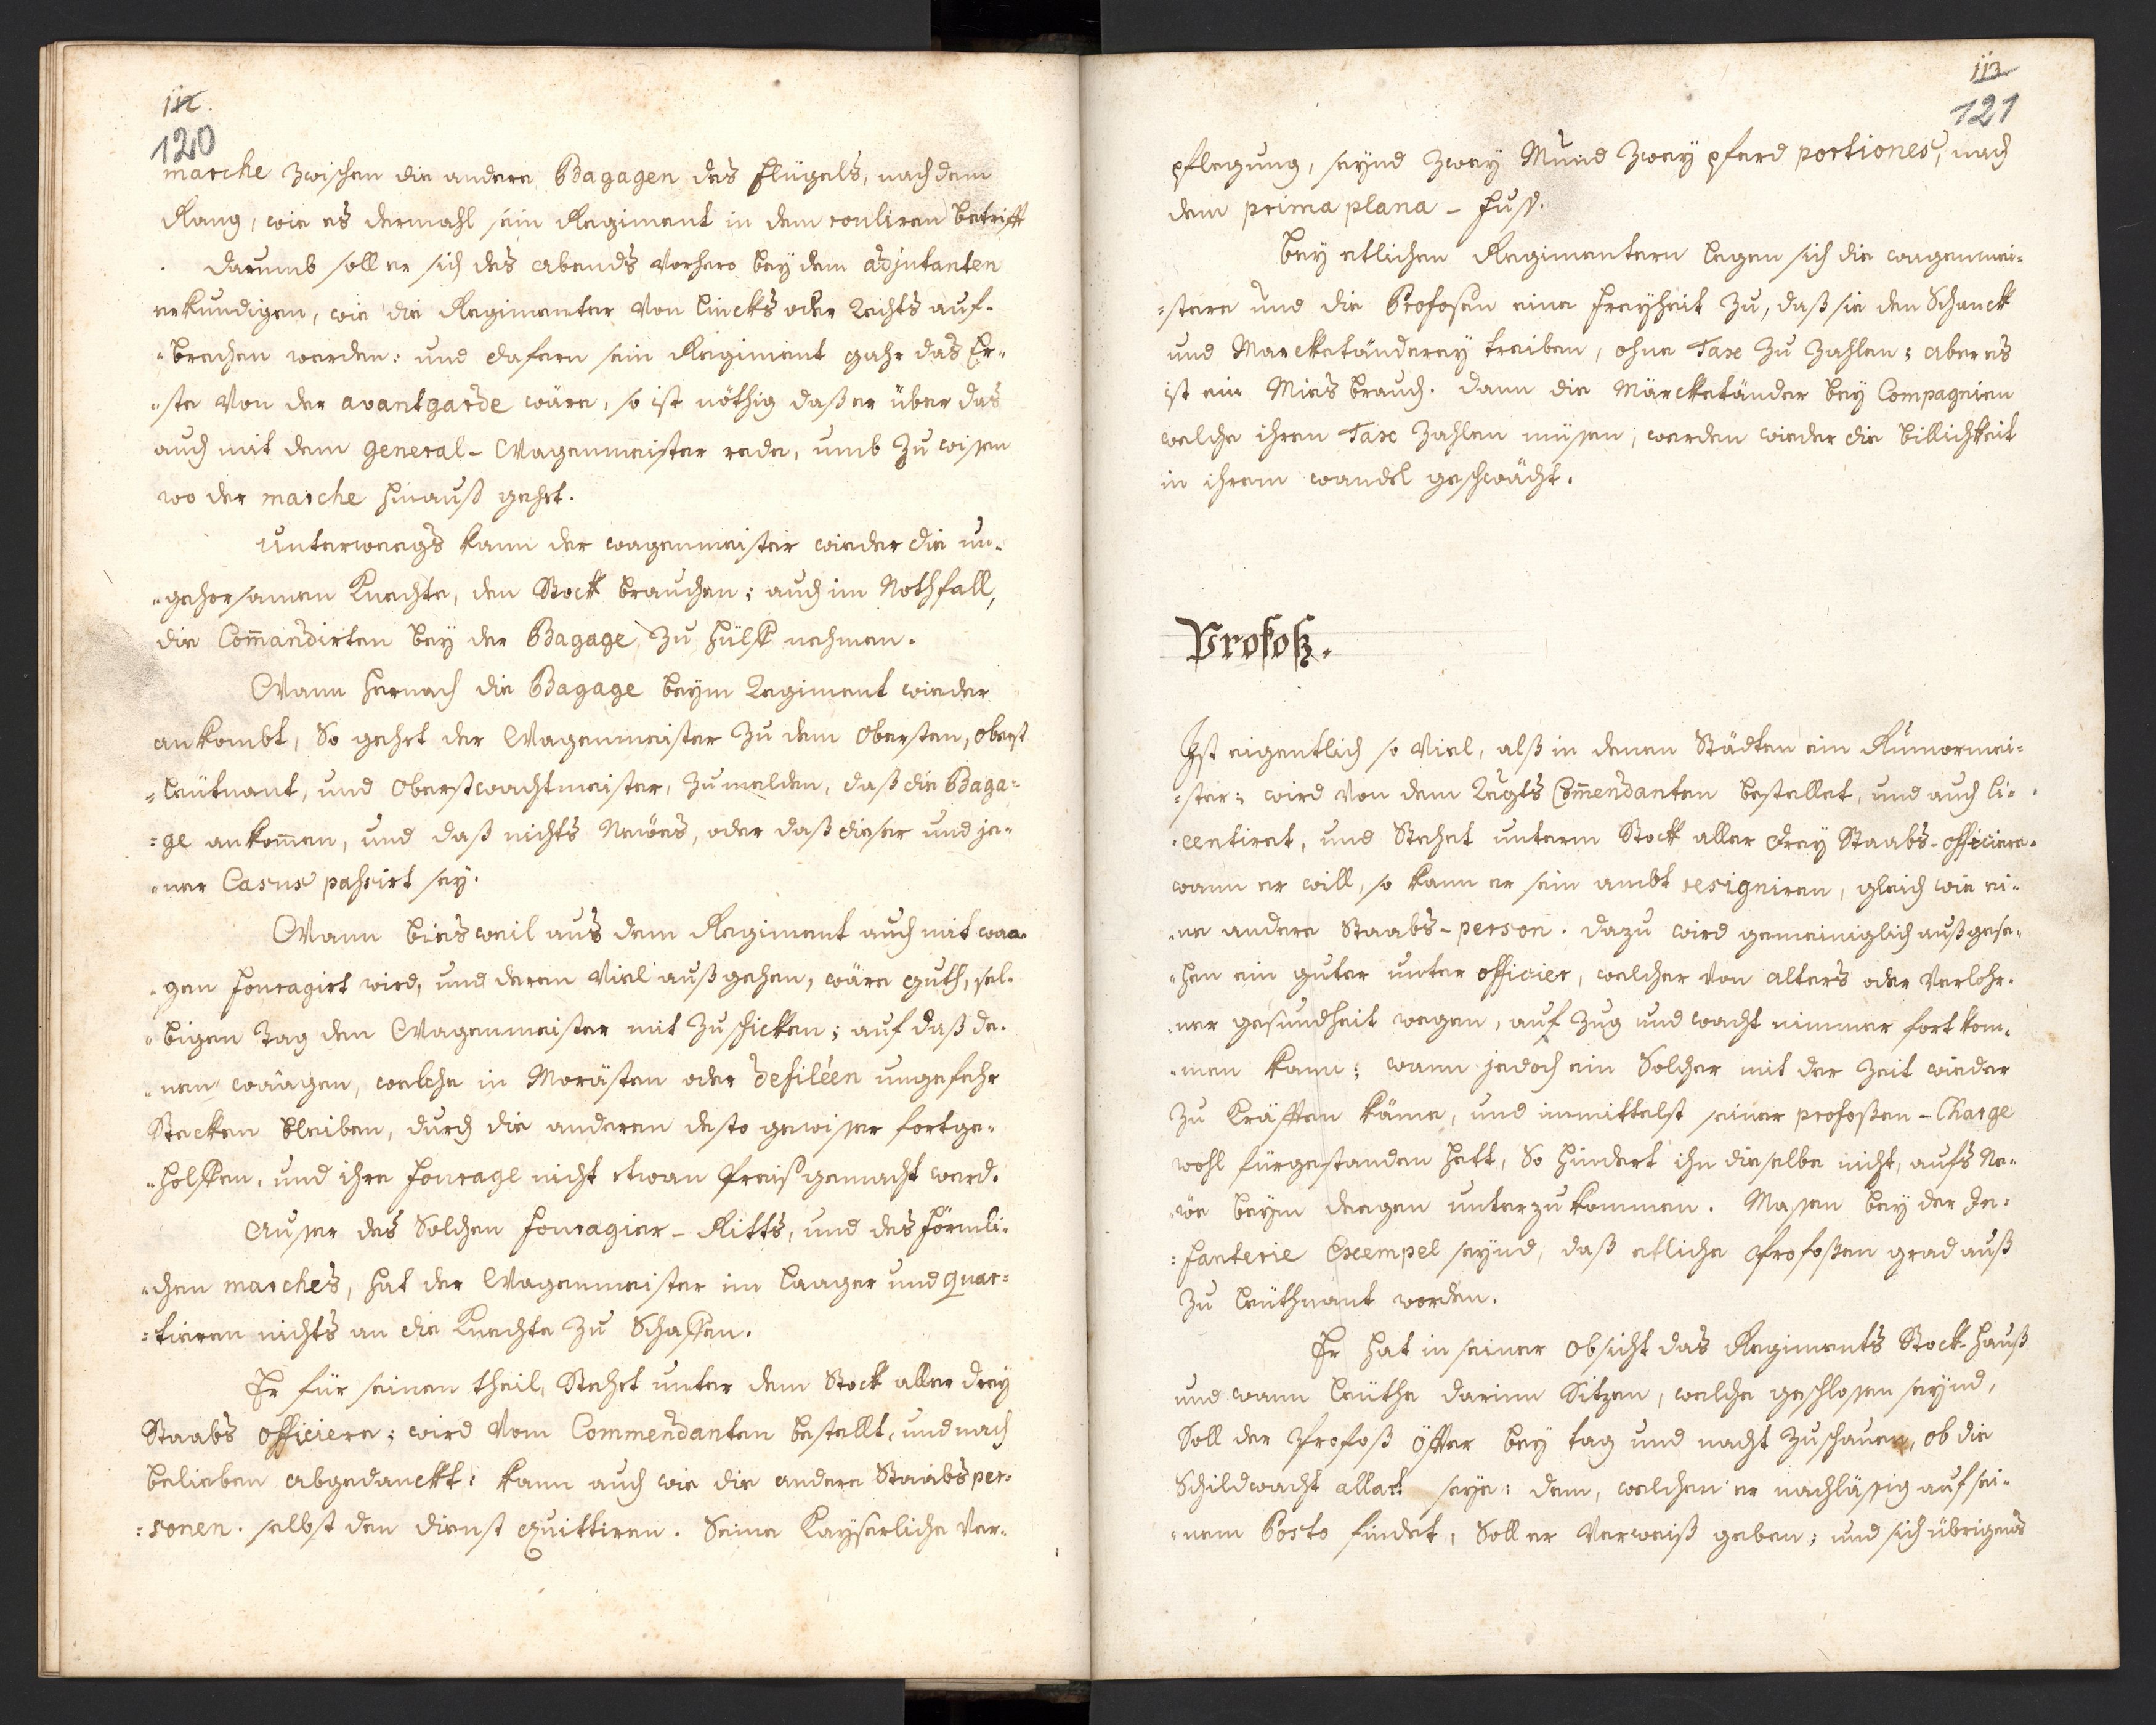 112.
120
marche zwischen die andere Bagagen des Flügels, nach dem
Rang, wie es dermahl sein Regiment in dem rouliren betrifft
darumb soll er sich des abends vorhero bey dem adjutanten
erkundigen, wie die Regimenter von lincks oder Rechts auf-
=brechen werden: und dafern sein Regiment gahr das Er=
=ste von der avantgarde wäre, so ist nöthig daß er über das
auch mit dem general-Wagenmeister rede, umb zu wissen
wo der marche hinauß gehet.
Unterweegs kann der wagenmeister wieder die un-
=gehorsamen Knechte, den Stock brauchen; auch im Nothfall,
die Com̄andirten bey der Bagage zu hülff nehmen.
Wann hernach die Bagage beym Regiment wieder
ankombt, So gehet der Wagenmeister zu dem Obersten, Oberst
=leütnant, und Oberstwachtmeister, zu melden, daß die Baga=
=ge ankom̄en, und daß nichts Neües, oder daß dieser und je=
=ner Casus passirt sey.
Wann biesweil aus dem Regiment auch mit waa=
=gen fouragirt wird, und deren viel außgehen, wäre guth, sel=
=bigen Tag den Wagenmeister mit zu schicken; auf daß de=
=nen waagen, welche in Morästen oder defiléen ungefehr
Stecken bleiben, durch die anderen desto gewisser fortge=
=holffen, und ihre fourage nicht etwan Preiß gemacht werd.
Ausser des Solchen fouragier-Ritts, und des förmli=
=chen marches, hat der Wagenmeister im Laager und quar=
=tieren nichts an die Knechte zu Schaffen.
Er für seinen theil, Stehet unter dem Stock aller drey
Staabs Officiere; wird vom Commendanten bestellt, und nach
belieben abgedanckt: kann auch wie die andere Staabs per=
=sonen. selbst den dienst quittiren. Seine Kayserliche Ver=
113
121
pflegung, seynd zwey Mund zwey pferd portiones, nach
dem prima plana - fuß.
Bey etlichen Regimentern legen sich die wagenmei=
=stere und die Profosen eine Freyheit zu, daß sie den Schanck
und Marcketänderey treiben, ohne Taxe zu zahlen; aber es
ist ein Miesbrauch. dann die Marcketänder bey Compagnien
welche ihren Taxe zahlen müssen, werden wieder die billichkeit
in ihrem wandel geschwächt.
Profoß.
Ist eigentlich so viel, alß in denen Städten ein Rumormei=
=ster: wird von dem Regts Com̄endanten bestellet, und auch li=
=centiret, und Stehet unterm Stock aller drey Staabs-officiere.
wann er will, so kann er sein ambt resigniren, gleich wie ei=
=ne andere Staabs-person. dazu wird gemeiniglich außgese=
=hen ein guter unter officier, welcher von alters oder verlohr=
=ner gesundheit wegen, auf zug und wacht nimmer fort kom=
=men kann; wann jedoch ein Solcher mit der Zeit wieder
zu Kräfften käme, und inmittelst seiner profoßen-Charge
wohl fürgestanden hett, So hindert ihn dieselbe nicht, aufs Ne=
=üe beym deegen unterzukommen. Massen bey der In=
=fanterie Exempel seynd, daß etliche Profoßen grad auß
zu Leüthnant worden.
Er hat in seiner obsicht das Regiments Stock-hauß
und wann Leüthe darinn Sitzen, welche geschlossen seynd,
Soll der Profoß öffter bey tag und nacht zuschauen, ob die
Schildwacht allart seye: dem, welchen er nachlässig auf sei=
=nem Posto findet, Soll er Verweiß geben; und sich übrigens